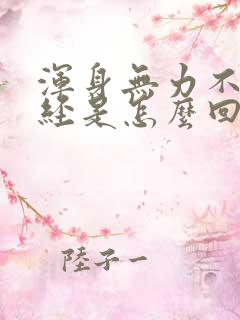 渾身無力不
經是怎麼回
陸子一